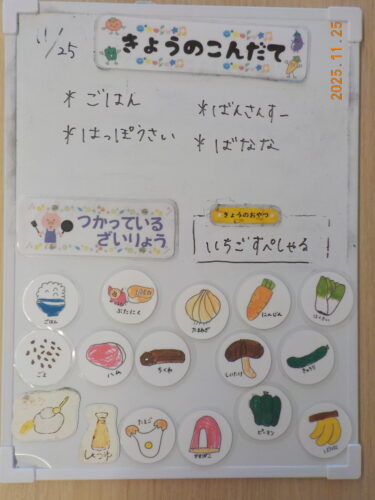 11/25
きょうのこんだて
2025.11.25
*ごはん
*ばんさんすー
*はっぽうさい
*ばなな
つかっている
ざいりょう
きょうのおやつ
いちごすぺしゃる
ごはん
ぶたにく
たまねぎ
にんじん
はくさい
ごま
ハム
ちくわ
しいたけ
きゅうり
しょうゆ
たまご
かまぼこ
ピーマン